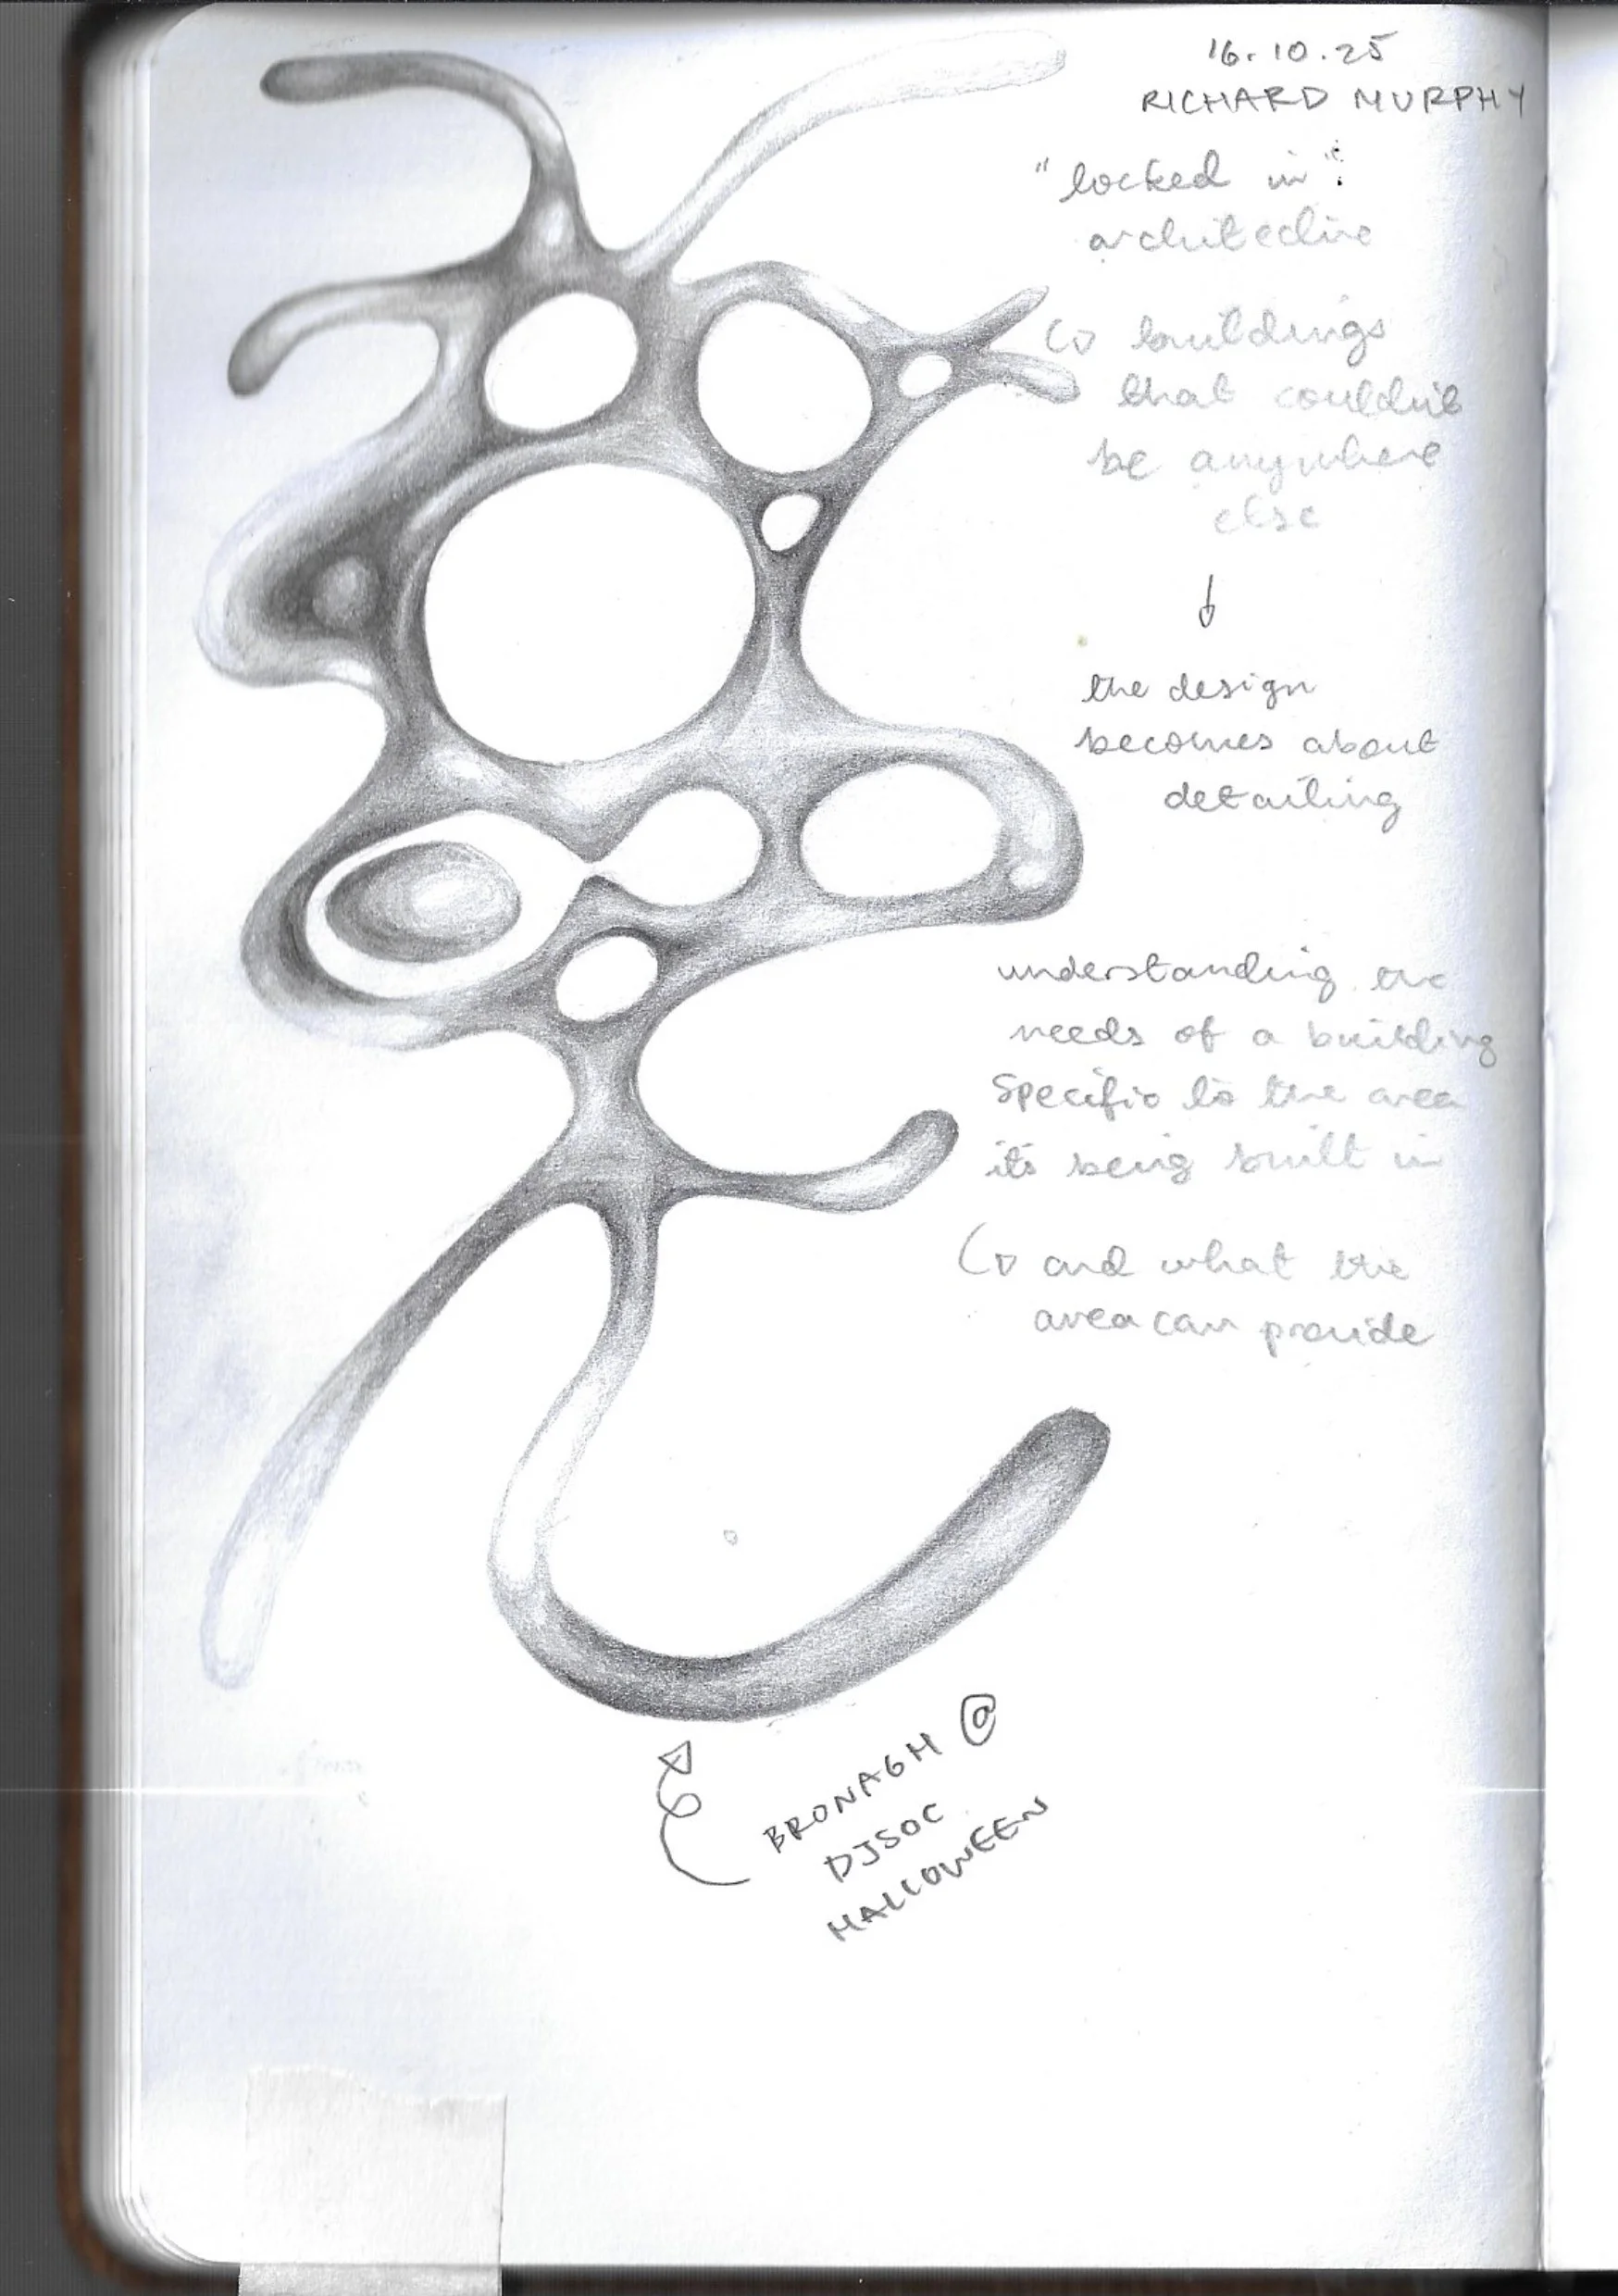 16.10.25
RICHARD MURPHY
"locked in":
architecture
↳ buildings
that couldn't
be anywhere
else
↓
the design
becomes about
detailing
understanding the
needs of a building
specific to the area
its being built in
↳ and what the
area can provide
BRONAGH @
DJSOC
HALLOWEEN